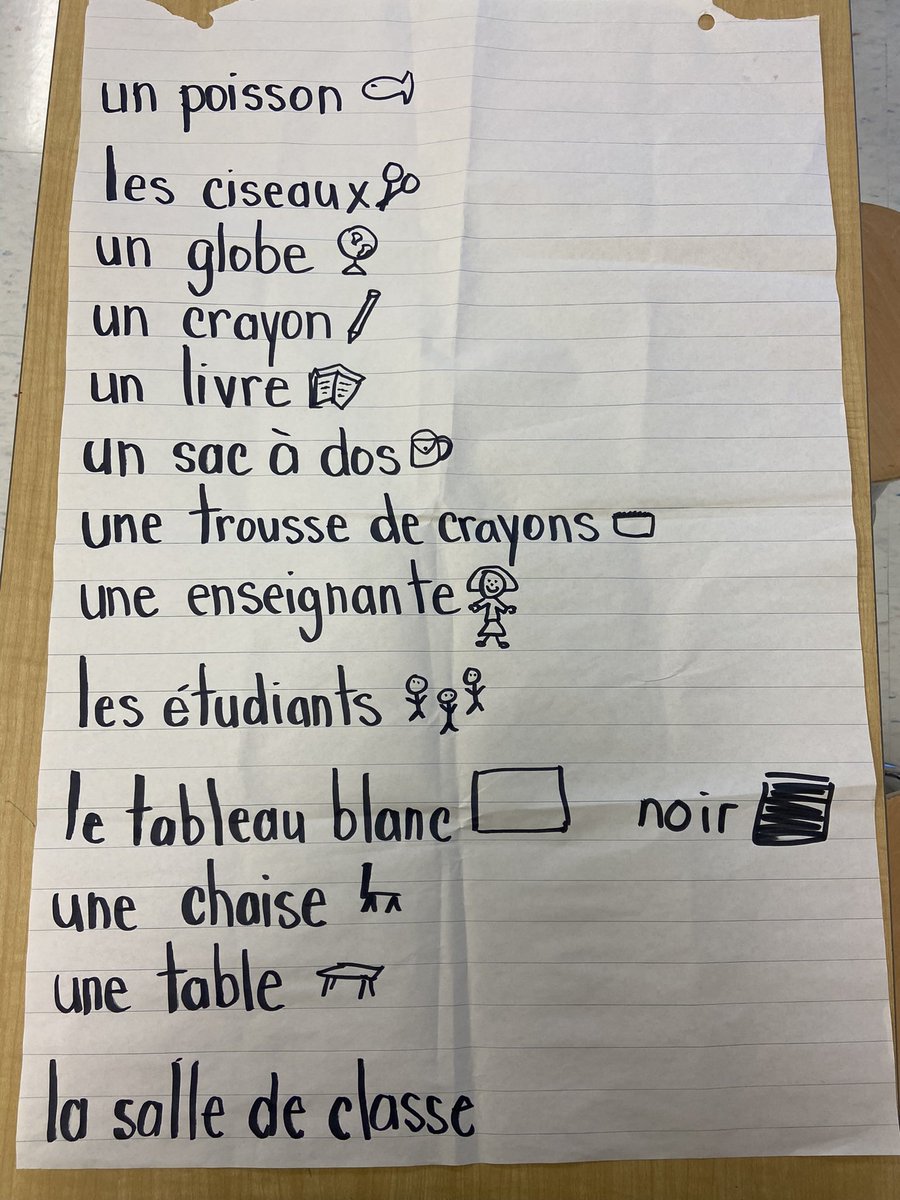 un poisson
les ciseaux
un globe
un crayon
un livre
un sac à dos
une trousse de crayons
une enseignante
les étudiants
le tableau blanc noir
une chaise
une table
la salle de classe